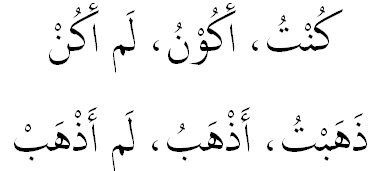 كُنْتُ، أَكُوْنُ، لَم أَكُنْ
ذَهَبْتُ، أَذْهَبُ، لَم أَذْهَبْ